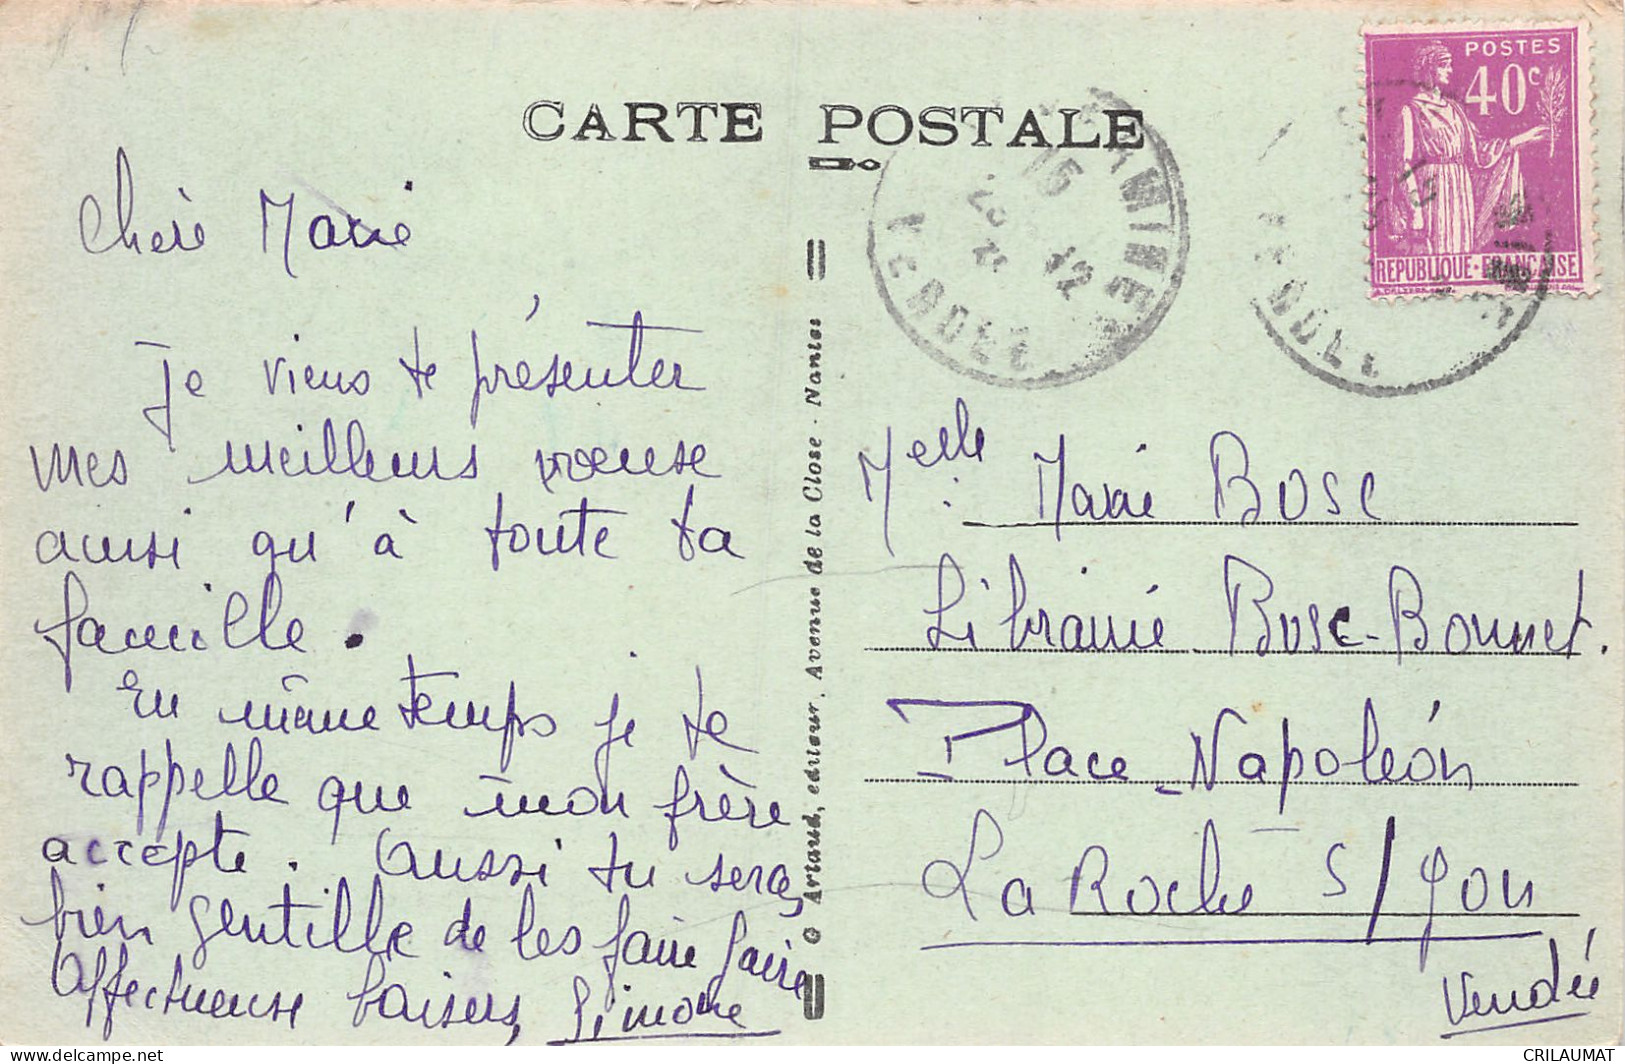 CARTE POSTALE
POSTES
40c
REPUBLIQUE · FRANCAISE
Chère Marie
Je viens te présenter
mes meilleurs voeuse
ainsi qu'à toute ta
famille.
En même temps je te
rappelle que mon frère
accepte. Aussi tu seras
bien gentille de les faire faire
Affectueuse baisers, Simone
© Artaud, editeur, Avenue de la Close - Nantes
Melle: Marie BOSC
Librairie Bosc-Bonnet.
Place Napoléon
La Roche s/ Yon
Vendée
15 12
VENDEE
CRILAUMAT